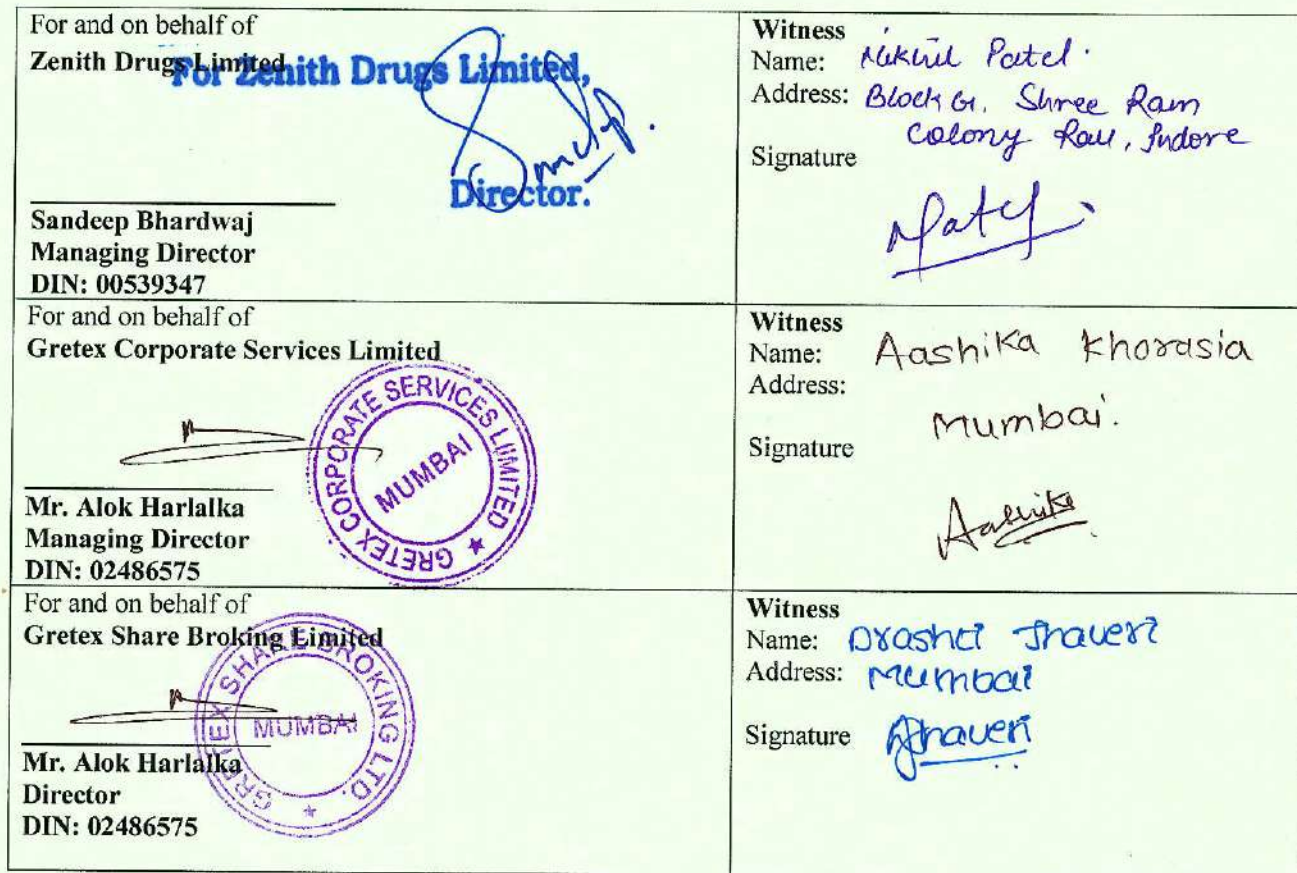 For and on behalf of
Zenith Drugs Limited
For Zenith Drugs Limited,
Director.
Sandeep Bhardwaj
Managing Director
DIN: 00539347
Witness
Name: Nikhil Patel.
Address: Block G. Shree Ram
Colony Rau, Indore
Signature
For and on behalf of
Gretex Corporate Services Limited
GRETEX CORPORATE SERVICES LIMITED ★
MUMBAI
Mr. Alok Harlalka
Managing Director
DIN: 02486575
Witness
Name: Aashika Khorasia
Address:
Mumbai.
Signature
Aashika
For and on behalf of
Gretex Share Broking Limited
GRETEX SHARE BROKING LTD. ★
MUMBAI
Mr. Alok Harlalka
Director
DIN: 02486575
Witness
Name: Drashti Jhaveri
Address: Mumbai
Signature Jhaveri